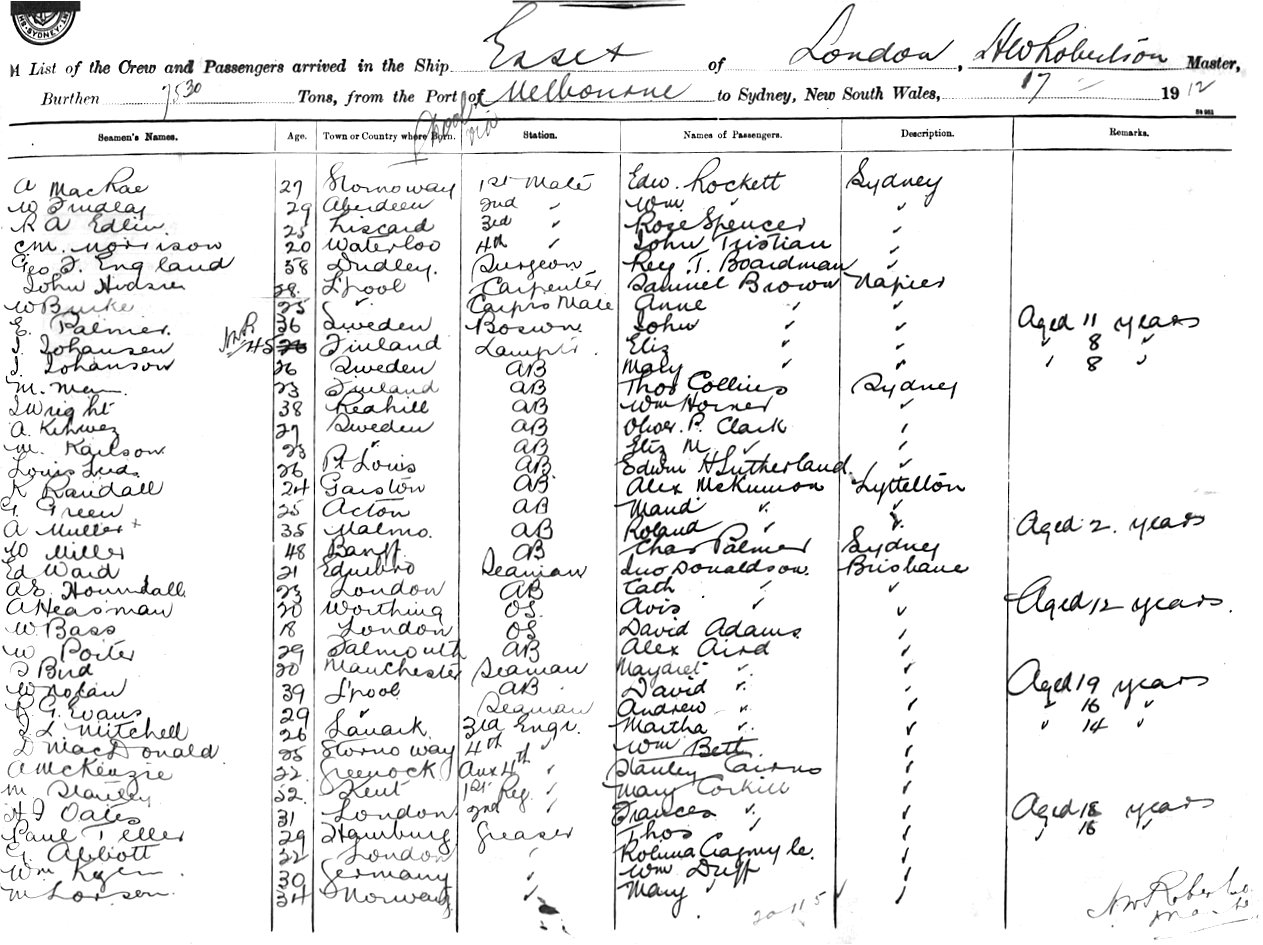 SYDNEY
List of the Crew and Passengers arrived in the Ship Essex of London, HW Robertson Master,
Burthen 7530 Tons, from the Port of Melbourne to Sydney, New South Wales, 17 1912
L'pool via
Seamen's Names. Age. Town or Country where Born. Station. Names of Passengers. Description. Remarks.
A MacRae 27 Stornoway 1st Mate Edw. Lockett Sydney
W Findlay 29 Aberdeen 2nd " Wm. " "
R A Edlin 25 Liscard 3rd " Rose Spencer "
C M. Morrison 20 Waterloo 4th " John Tristian "
Geo F. England 58 Dudley. Surgeon Rev. T. Boardman "
John Hudson 28. L'pool Carpenter Samuel Brown Napier
W Burke 25 " Carprs Mate Anne " "
E. Palmer. 36 Sweden Boswn John " " Aged 11 years
J. Johansen 45 Finland Lamptr. Eliz " " " 8 "
J. Johanson 26 Sweden AB Mary " " " 8 "
M. Men 23 Finland AB Thos Collins Sydney
J Wright 38 Redhill AB Wm Horner "
A. 27 Sweden AB Oliver. P. Clark "
M. Karlson 23 " AB Eliz M. " "
Louis 26 Pt Louis AB Edwin H Sutherland. "
K Randall 24 Garston AB Alex McKinnon Lyttelton
G. Green 25 Acton AB Maud " "
A Muller + 35 Malmo. AB Roland " " Aged 2. years
W Miller 48 Banff. AB Chas Palmer Sydney
Ed Ward 21 Seaman Jno Donaldson. Brisbane
A.E. Houndall 23 London AB Cath " "
A Heasman 20 Worthing OS. Avis " " Aged 12 years.
W. Bass 18 London OS David Adams "
W Porter 29 Falmouth AB Alex Aird "
Bird 20 Manchester Seaman Margaret " "
W Nolan 39 L'pool AB David " " Aged 19 years
G. Evans 29 " Seaman Andrew " " " 16 "
J L Mitchell 26 Lanark. 3rd Engr. Martha " " " 14 "
D MacDonald 25 Stornoway 4th " Wm Bett. "
A McKenzie 22 Greenock Aux 4th " Stanley Cairns "
M Stanley 32. Kent 1st Reg. " Mary Corkill "
H J Oates 31 London 2nd " Frances " " Aged 18 years
Paul Teller 29 Hamburg Greaser Thos " " " 16 "
G. Abbott 22 London " "
Wm 30 Germany " Wm Duff "
M Larsen 34 Norway " Mary " "
20115